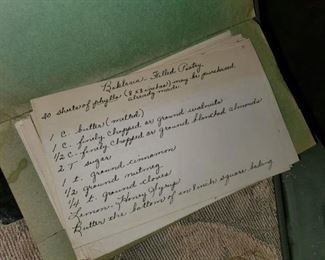 Baklava - Filled Pastry
40 sheets of phyllo (8 x 8 inches) may be purchased
already made
1 C. butter (melted)
1 C. finely chopped or ground walnuts
1/2 C. finely chopped or ground blanched almonds
2 T. sugar
1 t. ground cinnamon
1/2 ground nutmeg
1/4 t. ground cloves
Lemon-Honey Syrup
Butter the bottom of an 8 inch square baking